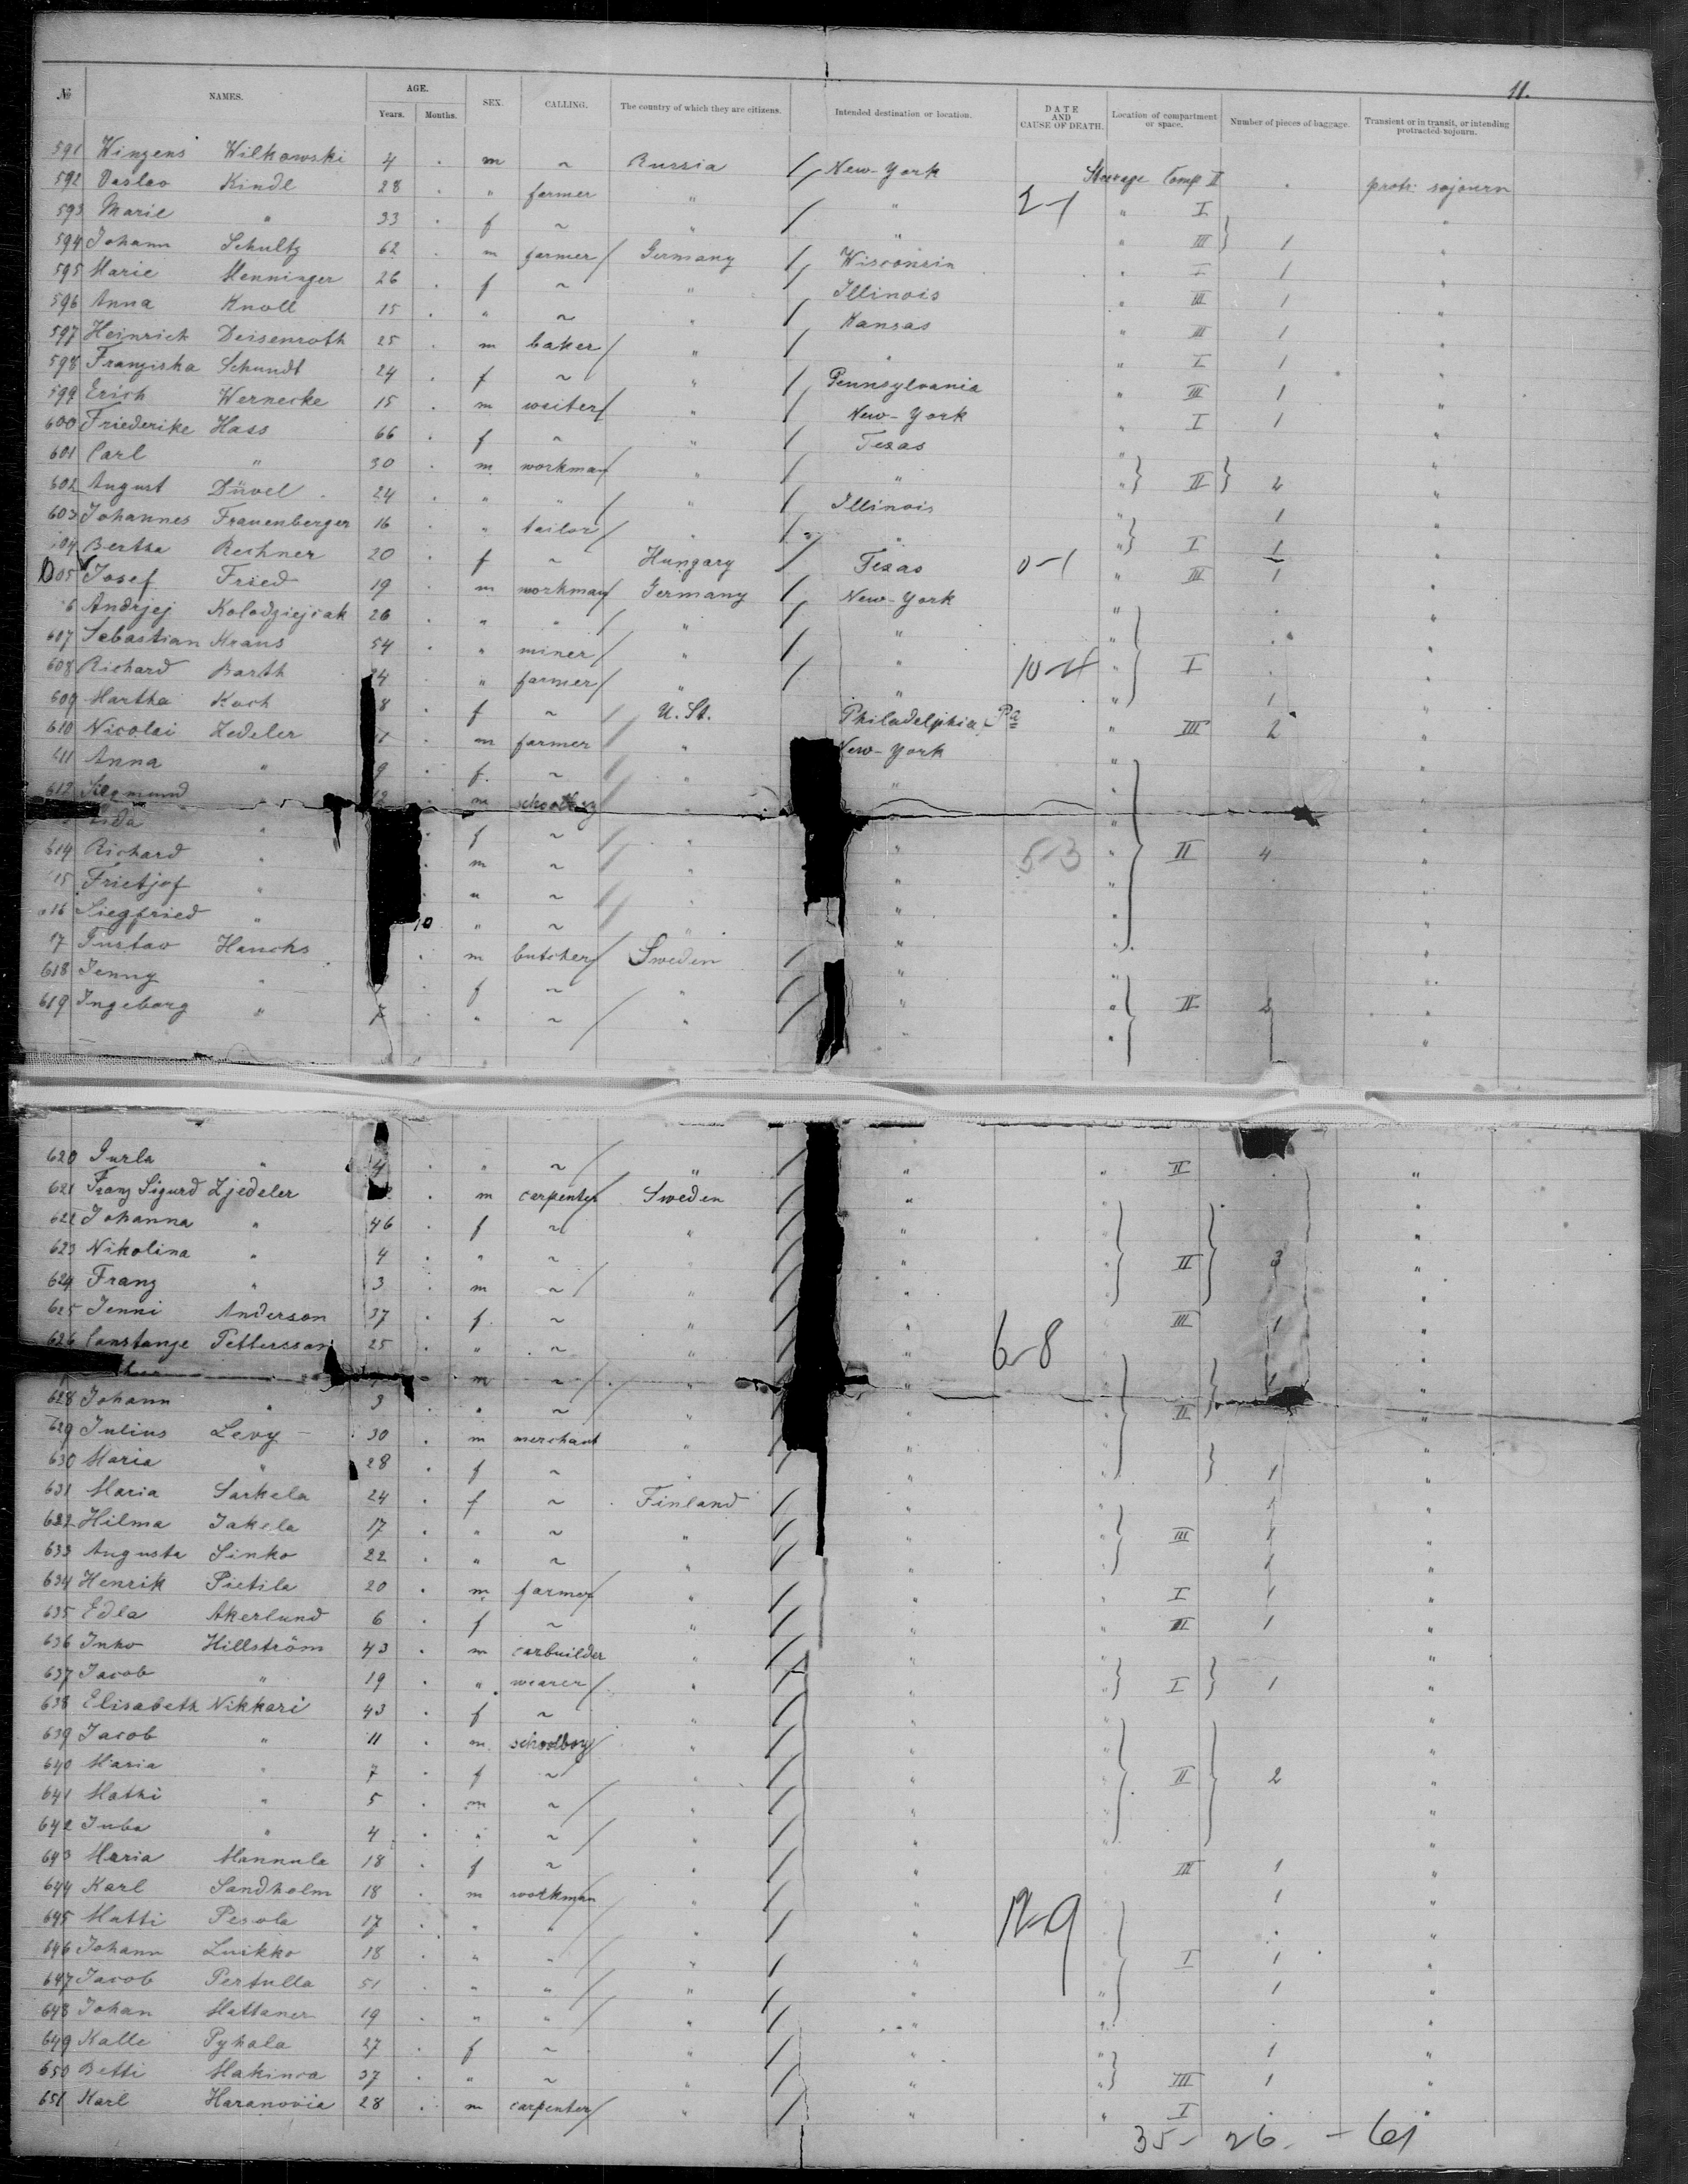 11.
№ NAMES. AGE. Years. Months. SEX. CALLING. The country of which they are citizens. Intended destination or location. DATE AND CAUSE OF DEATH. Location of compartment or space. Number of pieces of baggage. Transient or in transit, or intending protracted sojourn.
591 Winzens Wilkowski 4 . m ~ Russia / New-York Steerage Comp II . protr. sojourn
592 Vaslav Kindl 28 . " farmer " " 2-1 " I "
593 Marie " 33 . f ~ " / " " III } 1 "
594 Johann Schultz 62 . m farmer / Germany / Wisconsin " I 1 "
595 Marie Menninger 26 . f ~ " / Illinois " III 1 "
596 Anna Knoll 15 . " ~ " / Kansas " III 1 "
597 Heinrich Deisenroth 25 . m baker / " / " " I 1 "
598 Franziska Schundt 24 . f ~ " / Pennsylvania " III 1 "
599 Erich Wernecke 15 . m waiter / " / New-York " I 1 "
600 Friederike Hass 66 . f ~ " / Texas " "
601 Carl " 30 . m workman / " / " " } II } 2 "
602 August Düvel 24 . " " / " / Illinois " 1 "
603 Johannes Frauenberger 16 . " tailor / " / " " } I 1 "
604 Bertha Rechner 20 . f ~ Hungary / Texas 0-1 " III 1 "
605 Josef Fried 19 . m workman / Germany / New-York " . "
6 Andrzej Kolodziejcak 26 . " " / " / " " . "
607 Sebastian Kraus 54 . " miner / " / " " I . "
608 Richard Barth 24 . " farmer / " / " 10-4 " 1 "
609 Martha Koch 8 . f ~ / U. St. Philadelphia Pa " III 2 "
610 Nicolai Zedeler 1 . m farmer / " New-York " "
611 Anna " 9 . f ~ / " " " "
612 Siegmund " 12 . m schoolboy " " " "
Lida " . f ~ / " " " "
614 Richard " . m ~ / " " 5-3 " II 4 "
15 Frietjof " . " ~ / " " " "
616 Siegfried " 10 " ~ / " " " "
17 Gustav Hancks . m butcher / Sweden / " " "
618 Jenny " . f ~ " / " " II 2 "
619 Ingeborg " 7 . " ~ / " / " " "
620 Gurla " 4 . " ~ / " / " " II . "
621 Franz Sigurd Zjedeler . m carpenter Sweden / " " "
622 Johanna " 46 . f ~ / " / " " "
623 Nikolina " 4 . " ~ " / " " II 3 "
624 Franz " 3 . m ~ / " / " " "
625 Jenni Anderson 37 . f ~ " / " III 1 "
626 Constanze Pettersson 25 . " ~ " / " 6-8 "
. m ~ / " "
628 Johann " 3 . " ~ " / " " II "
629 Julius Levy 30 . m merchant " / " " "
630 Maria " 28 . f ~ " / " " } 1 "
631 Maria Sarkela 24 . f ~ Finland / " " 1 "
622 Hilma Jakela 17 . " ~ " / " " III 1 "
633 Augusta Sinko 22 . " ~ " / " " 1 "
634 Henrik Pietila 20 . m farmer / " / " " I 1 "
635 Edla Akerlund 6 . f ~ " / " " III 1 "
636 Inko Hillström 43 . m carbuilder " / " " "
637 Jacob " 19 . " wearer / " / " " } I } 1 "
638 Elisabeth Nikkari 43 . f ~ " / " " "
639 Jacob " 11 . m schoolboy / " / " " "
640 Maria " 7 . f ~ / " / " " II 2 "
641 Mathi " 5 . m ~ / " / " " "
642 Juba " 4 . " ~ / " / " " "
643 Maria Mannula 18 . f ~ " / " III 1 "
644 Karl Sandholm 18 . m workman " / " 1 "
645 Matti Pesola 17 . " " / " / " 12-9 . "
646 Johann Luikko 18 . " " / " / " I 1 "
647 Jacob Pertulla 51 . " " / " / " " 1 "
648 Johan Mattaner 19 . " " / " / " " . "
649 Kalle Pyhala 27 . f ~ " / " " 1 "
650 Betti Makinca 37 . " ~ " / " " } III 1 "
651 Karl Haranovia 28 . m carpenter / " / " " I . "
35 - 26 - 61